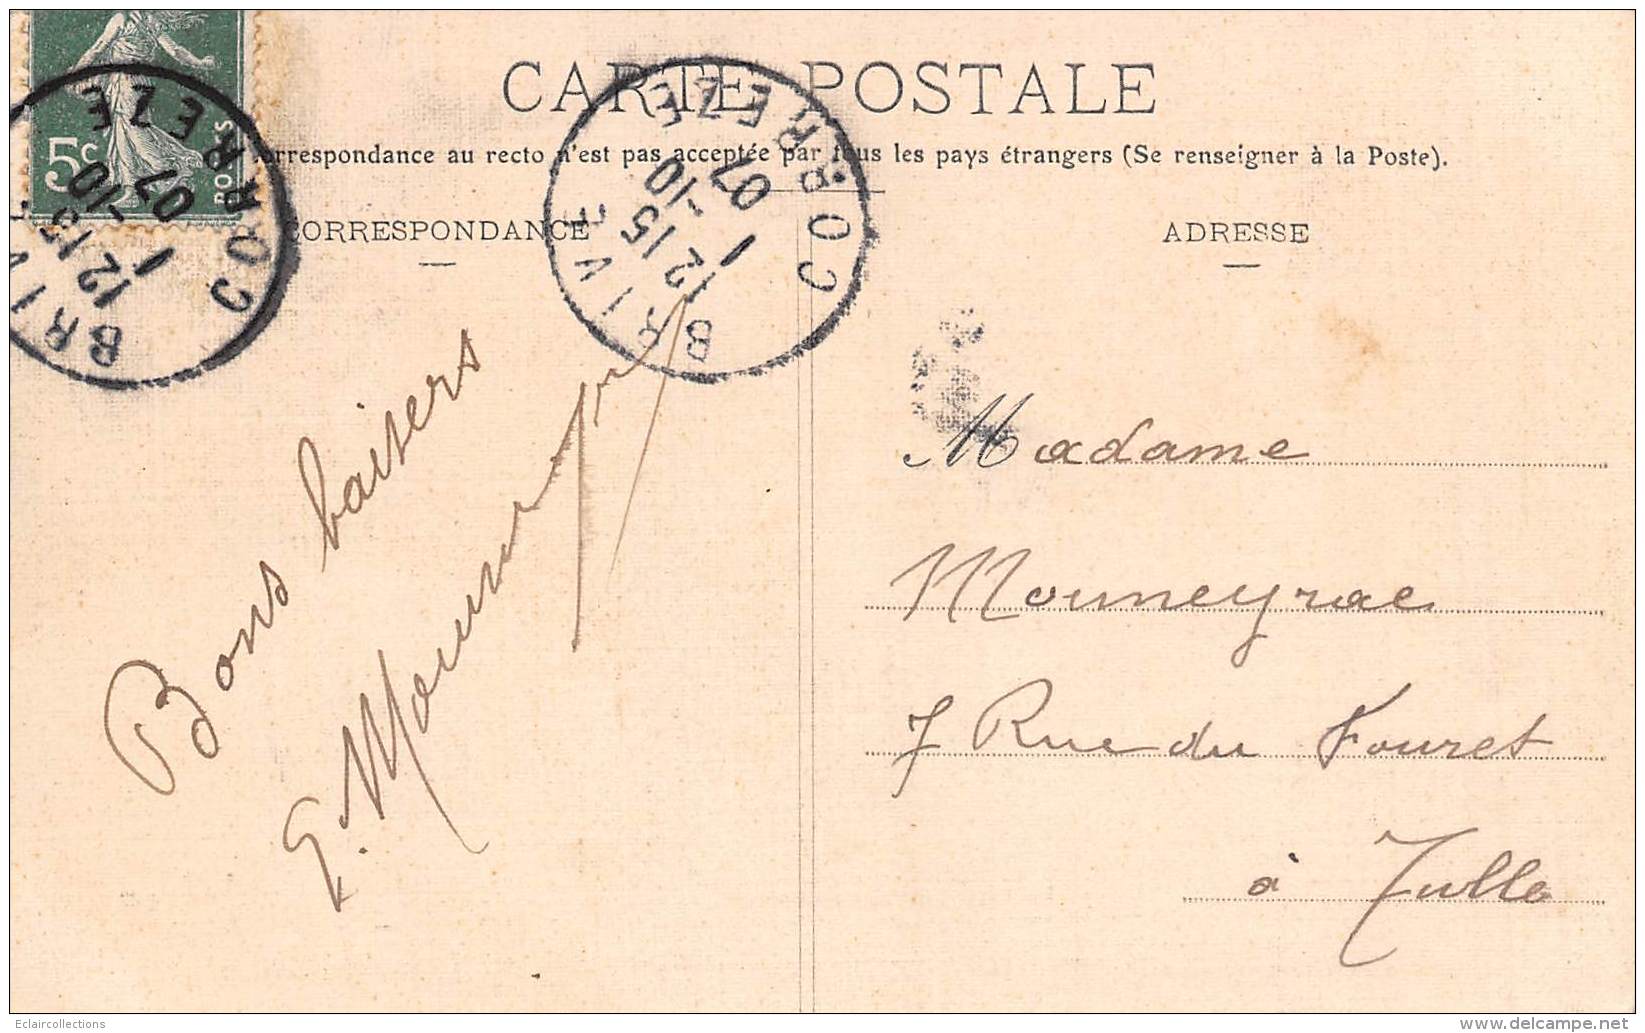 CARTE POSTALE
orrespondance au recto n'est pas acceptée par tous les pays étrangers (Se renseigner à la Poste).
CORRESPONDANCE
ADRESSE
5c
POSTES
BRIVE
12 15
1 -10
07
CORREZE
BRIVE
12 15
1 -10
07
CORREZE
Bons baisers
E. Moumeyrac
Madame
Moumeyrac
7 Rue du Fouret
à Tulle
Eclaircollections
delcampe.net